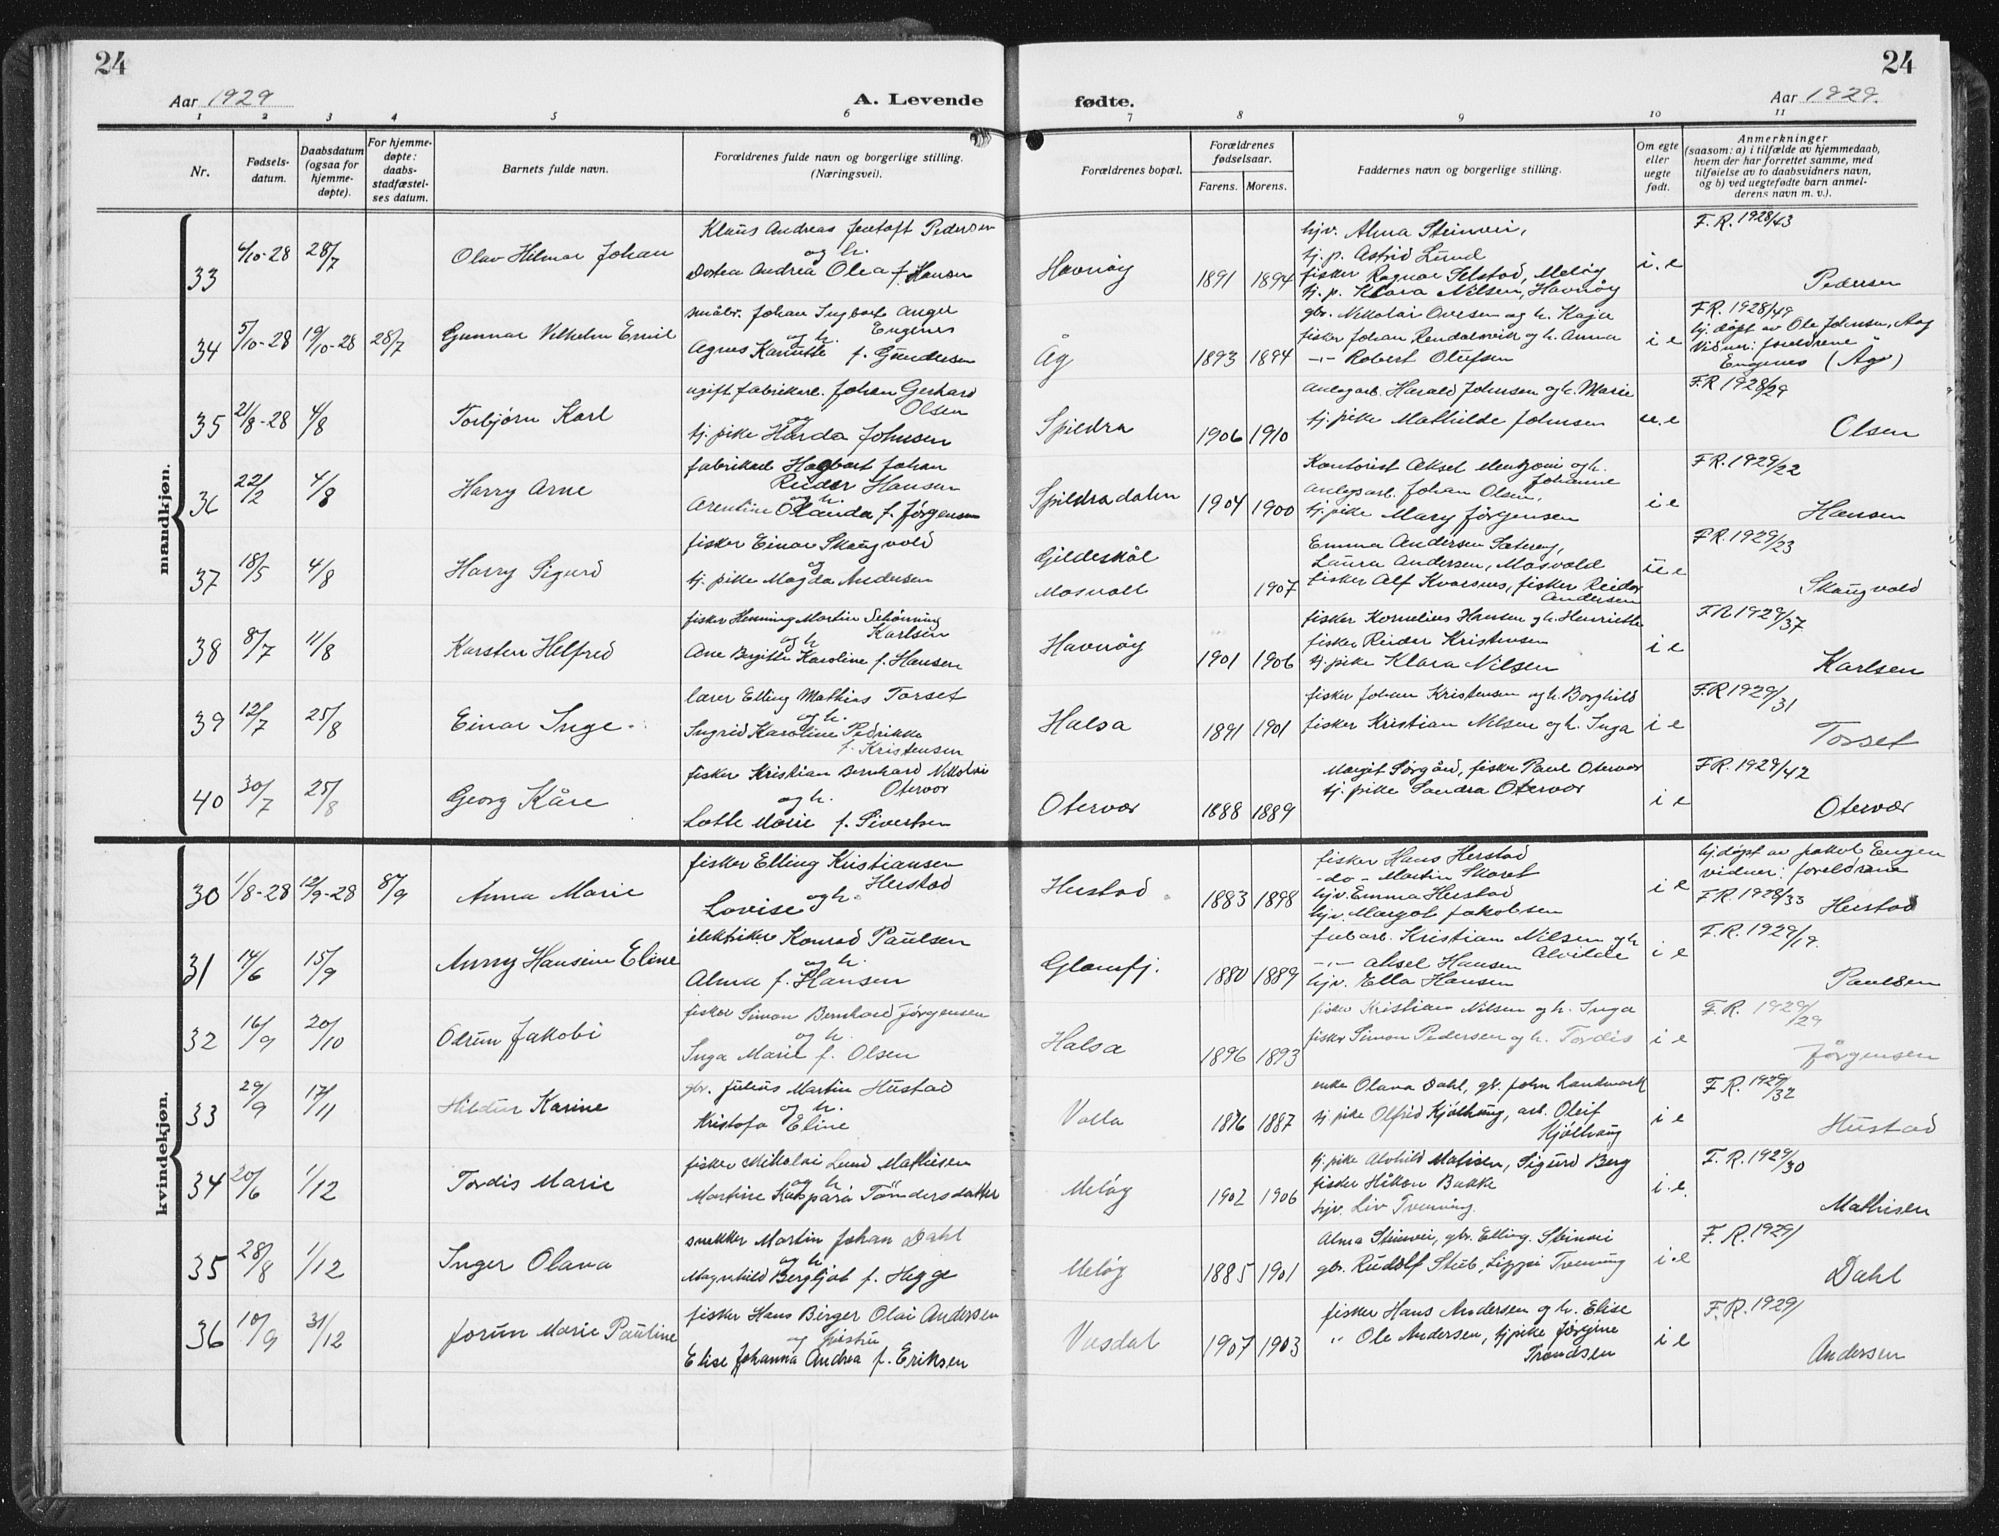 24
24
Aar 1929
A. Levende
fødte.
Aar 1929.
1 2 3 4 5 6 7 8 9 10 11
Nr.
Fødsels-
datum.
Daabsdatum
(ogsaa for
hjemme-
døpte).
For hjemme-
døpte:
daabs-
stadfæstel-
ses datum.
Barnets fulde navn.
Forældrenes fulde navn og borgerlige stilling.
(Næringsvei).
Forældrenes bopæl.
Forældrenes
fødselsaar.
Farens. Morens.
Faddernes navn og borgerlige stilling.
Om egte
eller
uegte
født.
Anmerkninger
(saasom: a) i tilfælde av hjemmedaab,
hvem der har forrettet samme, med
tilføielse av to daabsvidners navn,
og b) ved uegtefødte barn anmel-
derens navn m. v.).
mandkjøn.
33 4/10-28 28/7 Olav Hilmar Johan
Klaus Andreas Jentoft Pedersen
og h.
Dortea Andrea Olea f. Hansen
Havnöy 1891 1894
hjv. Alma Steinvei,
tj. p. Astrid Lund
fisker Ragnar Selstad, Melöy
tj. p. Klara Nilsen, Havnöy
i. e
F. R. 1928/43
Pedersen
34 5/10-28 19/10-28 28/7 Gunnar Vilhelm Emil
småbr. Johan Ingbart Angel
Engenes
og h.
Agnes Kanutte f. Gundersen
Åg 1893 1894
gbr. Nikolai Ovesen og h. Kaja
fisker Johan Rendalsvik og h. Anna
-"- Robert Olufsen
i e
F.R. 1928/49
hj. döpt av Ole Johnsen, Aag
Vidner: foreldrene
Engenes (Åg)
35 21/8-28 4/8 Torbjörn Karl
ugift fabrikarb. Johan Gerhard
Olsen
og
tj. pike Harda Johnsen
Spildra 1906 1910
anlegarb. Harald Johnsen og h. Marie
tj. pike Mathilde Johnsen
u. e
F.R 1928/29
Olsen
36 22/2 4/8 Harry Arne
fabrikarb Hagbart Johan
Reidar Hansen
og h.
Arentine Olanda f. Jörgensen
Spildradalen 1904 1900
Kontorist Aksel og h.
Johanne
anlegsarb. Johan Olsen,
tj. pike Mary Jörgensen
i e
F.R. 1929/22
Hansen
37 18/5 4/8 Harry Sigurd
fisker Einar Skaugvold
og
tj. pike Magda Andersen
Gildeskål
Mosvoll 1907
Emma Andersen Sæteröy,
Laura Andersen, Mosvold
fisker Alf Kvarsnes, fisker Reidar
Andersen
u e
F.R. 1929/23
Skaugvold
38 8/7 11/8 Karsten Helfred
fisker Henning Martin Schönning
Karlsen
og h
Ane Bergitte Karoline f. Hansen
Havnöy 1901 1906
fisker Kornelius Hansen og h. Henriette
fisker Reidar Kristensen
tj. pike Klara Nilsen
i e
F.R. 1929/37
Karlsen
39 12/7 25/8 Einar Inge
lærer Elling Mathias Torset
og h.
Ingrid Karoline Pedrikke
f. Kristensen
Halsa 1891 1901
fisker Johan Kristensen og h. Borghild
fisker Kristian Nilsen og h. Inga
i e
F.R 1929/31
Torset
40 30/7 25/8 Georg Kåre
fisker Kristian Bernhard Nikolai
Otervær
og h.
Lotte Marie f. Sivertsen
Oterver 1888 1889
Margit Sörgård, fisker Paul Otervær
tj. pike Sandra Otervær
i e
F.R. 1929/42
Otervær
kvindekjøn.
30 1/8-28 12/9-28 8/9 Anna Marie
fisker Elling Kristiansen
Herstad
og h.
Lovise
Herstad 1883 1898
fisker Hans Herstad
-do- Martin Skaret
hjv. Emma Herstad
hjv. Margot Jakobsen
i e
hj. döpt av Jakob Engen
vidner: foreldrene
F.R. 1928/33
Herstad
31 14/6 15/9 Anny Hansine Eline
elektriker Konrad Paulsen
og h.
Alma f. Hansen
Glomfj. 1880 1889
fabarb. Kristian Nilsen og h
Alvilde
-"- Aksel Hansen
hjv. Ella Hansen
i e
F.R. 1929/19.
Paulsen
32 16/9 20/10 Odrun Jakobi
fisker Simon Bernhard Jörgensen
og h.
Inga Marie f. Olsen
Halsa 1896 1893
fisker Kristian Nilsen og h. Inga
fisker Simon Pedersen og h. Tordis
i e
F.R. 1929/29
Jörgensen
33 29/9 17/11 Hildur Karine
gbr. Julius Martin Hustad
og h.
Kristofa Eline
Valla 1876 1887
enke Olava Dahl, gb. John Landmark
tj pike Olfrid Kjölhaug, arb. Oleif
Kjölhaug
i e
F.R. 1929/32
Hustad
34 20/6 1/12 Tordis Marie
fisker Nikolai Lund Mathisen
og h
Martine Kaspara Töndersdatter
Melöy 1902 1906
tj. pike Alvhild Matisen, Sigurd Berg
fisker Håkon Bakke
hjv. Liv Trenning
i. e.
F.R. 1929/30
Mathisen
35 28/8 1/12 Inger Olava
snekker Martin Johan Dahl
og h
Magnhild Bergljot f. Hegge
Melöy 1885 1901
Alma Steinvei, gbr. Elling Steinvei
gbr. Rudolf Stub, Lippi Trenning
i. e
F.R. 1929/
Dahl
36 10/9 31/12 Jorun Marie Pauline
fisker Hans Birger Olai Andersen
og hustru
Elise Johanna Andrea f. Eriksen
Vasdal 1907 1903
fisker Hans Andersen og h. Elise
" Ole Andersen, tj pike Jörgine
Trondsen
i e
F.R. 1929/
Andersen